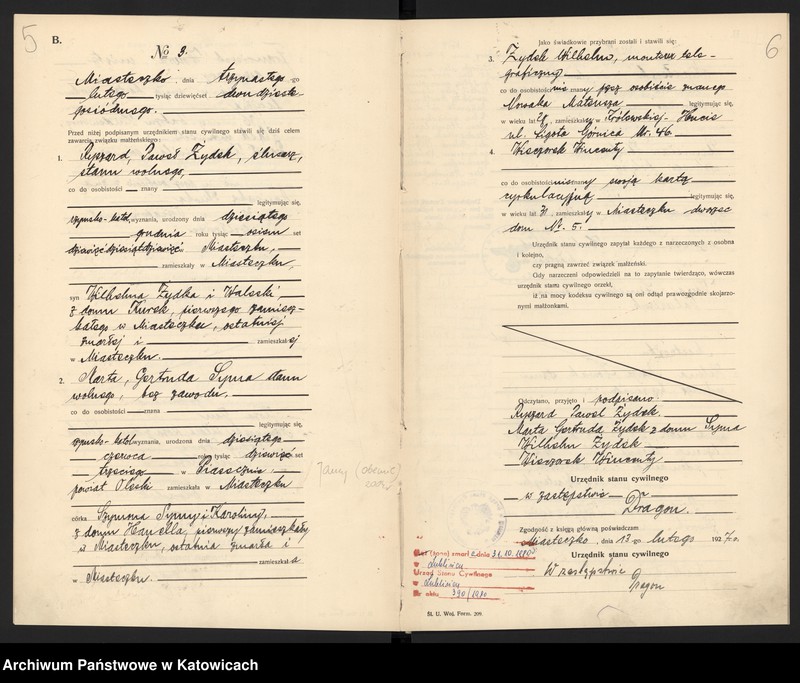 5
B.
No 9.
Miasteczko dnia trzynastego
lutego tysiąc dziewięćset dwudziestego
siódmego.
Przed niżej podpisanym urzędnikiem stanu cywilnego stawili się dziś celem
zawarcia związku małżeńskiego:
1. Ryszard, Paweł Zydek, ślusarz,
stanu wolnego,
co do osobistości znany
legitymując się,
rzymsko-katol. wyznania, urodzony dnia dziesiątego
grudnia roku tysiąc osiem set
dziewięćdziesiątdziewięć Miasteczku,
zamieszkały w Miasteczku,
syn Wilhelma Zydka i Waleski
z domu Kurek, pierwszego zamiesz-
kałego w Miasteczku, ostatniej
zmarłej i zamieszkałej
w Miasteczku.
2. Marta, Gertruda Syma stanu
wolnego, bez zawodu,
co do osobistości znana
legitymując się,
rzymsko-katol. wyznania, urodzona dnia dziesiątego
czerwca roku tysiąc dziewięć set
trzeciego w Piasecznie
powiat Oleski zamieszkała w Miasteczku
córka Szymona Symy i Karoliny,
z domu pierwszy zamieszkały
w Miasteczku, ostatnia zmarła i
zamieszkała
w Miasteczku.
6
Jako świadkowie przybrani zostali i stawili się:
3. Zydek Wilhelm, monter tele-
graficzny
co do osobistości nie znany przez osobiście znanego
Nowaka Mateusza legitymując się,
w wieku lat 27, zamieszkały w Królewskiej-Hucie
ul. Ligota Górnica Nr. 46.
4. Wieczorek Wincenty
co do osobistości nieznany swoją kartą
cyrkulacyjną legitymując się,
w wieku lat 31 zamieszkały w Miasteczku dworzec
dom No. 5.
Urzędnik stanu cywilnego zapytał każdego z narzeczonych z osobna
i kolejno,
czy pragną zawrzeć związek małżeński.
Gdy narzeczeni odpowiedzieli na to zapytanie twierdząco, wówczas
urzędnik stanu cywilnego orzekł,
iż na mocy kodeksu cywilnego są oni odtąd prawozgodnie skojarzo-
nymi małżonkami.
Odczytano, przyjęto i podpisano:
Ryszard Paweł Zydek.
Marta Gertruda Zydek z domu Syma
Wilhelm Zydek
Wieczorek Wincenty
Urzędnik stanu cywilnego
w zastępstwie
Dragon.
Zgodność z księgą główną poświadczam
Miasteczko, dnia 13-go lutego 1927 ro.
Urzędnik stanu cywilnego
W zastępstwie
Dragon
Mąż (żona) zmarł dnia 31.10.
w Lublińcu
Urząd Stanu Cywilnego
w Lublińcu
Nr aktu 390/1980
Śl. U. Woj. Form. 209.
Archiwum Państwowe w Katowicach